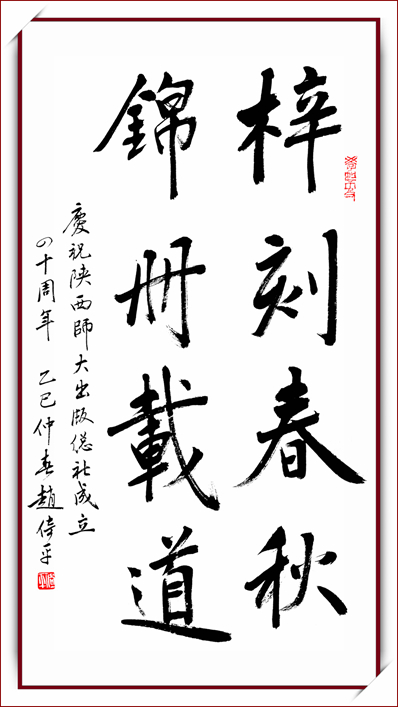 梓刻春秋
錦册載道
慶祝陕西師大出版总社成立
四十周年 乙巳仲春趙倚平